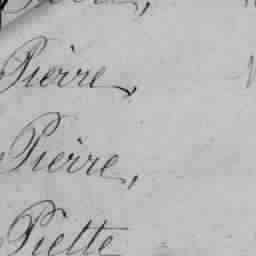 Pierre,
Pierre,
Piette